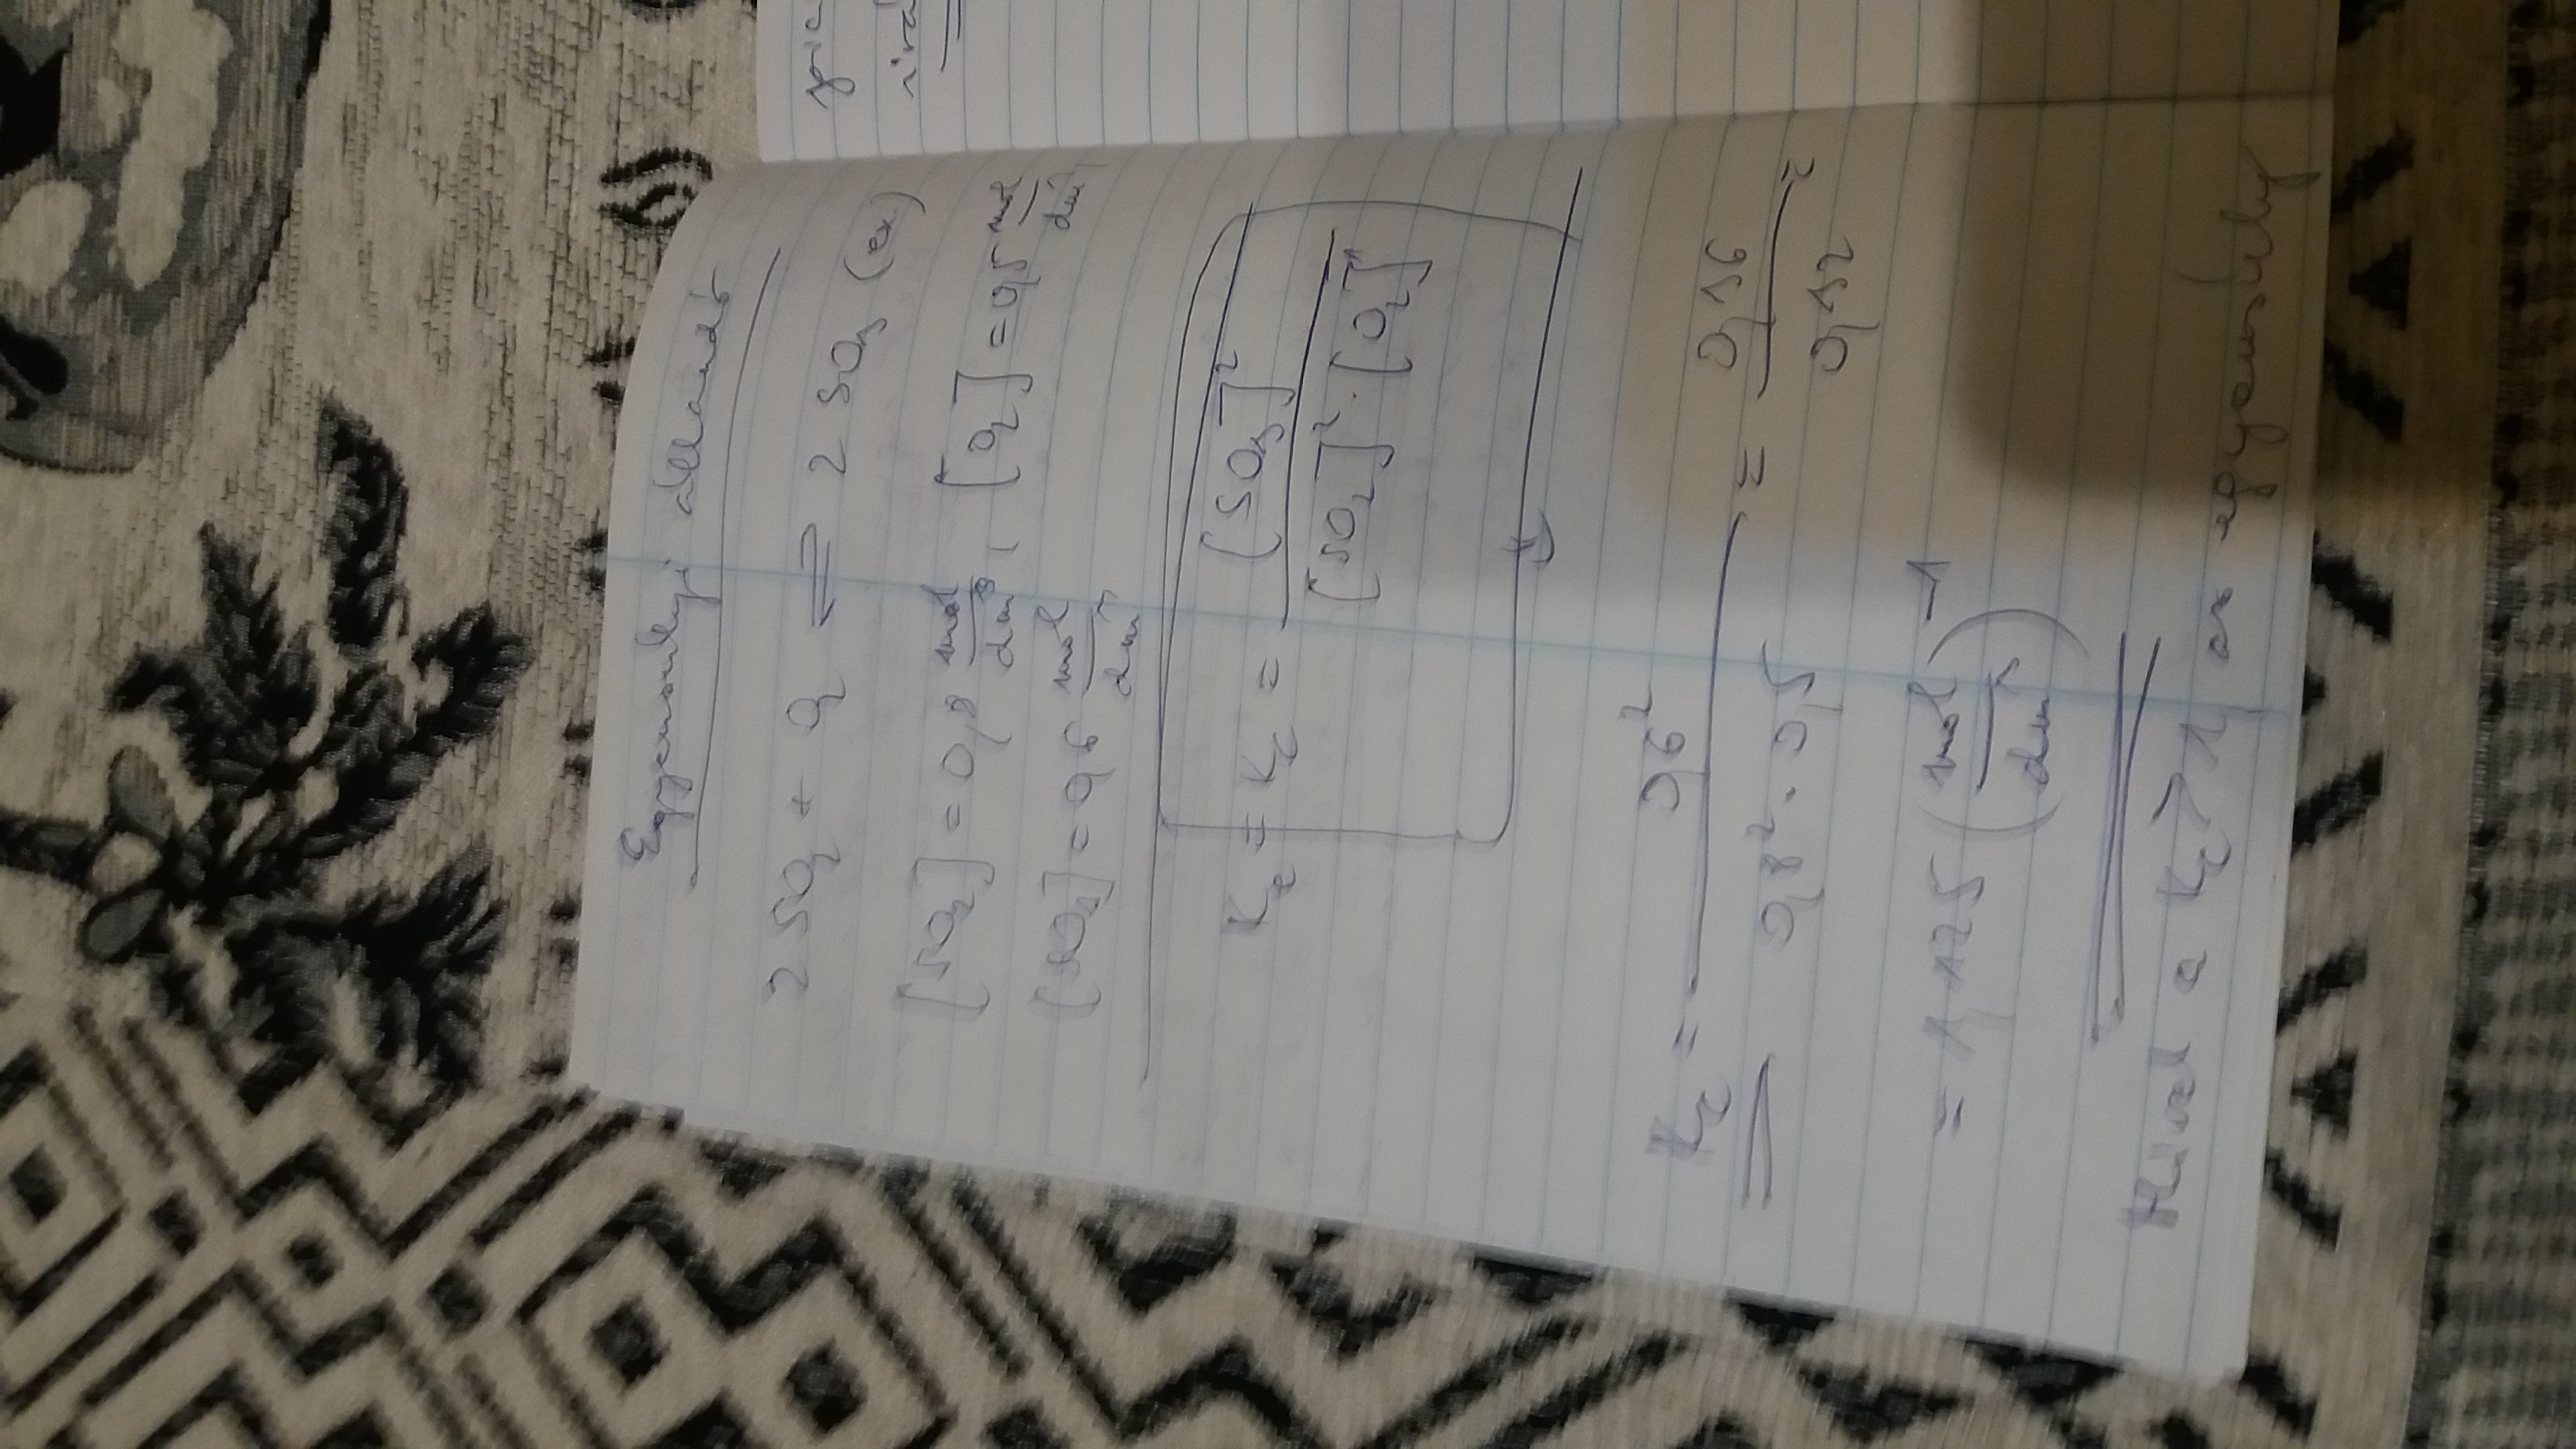 Egyensúlyi állandó
2 SO₂ + O₂ ⇌ 2 SO₃ (ex)
[SO₂] = 0,8 mol/dm³, [O₂] = 0,5 mol/dm³,
[SO₃] = 0,6 mol/dm³
K_e = K_c = [SO₃]² / [SO₂]² · [O₂]
K_c = 0,6² / 0,8² · 0,5 = 0,36 / 0,32 =
= 1,125 (mol/dm³)⁻¹
Mivel a K_c > 1, az egyensúly